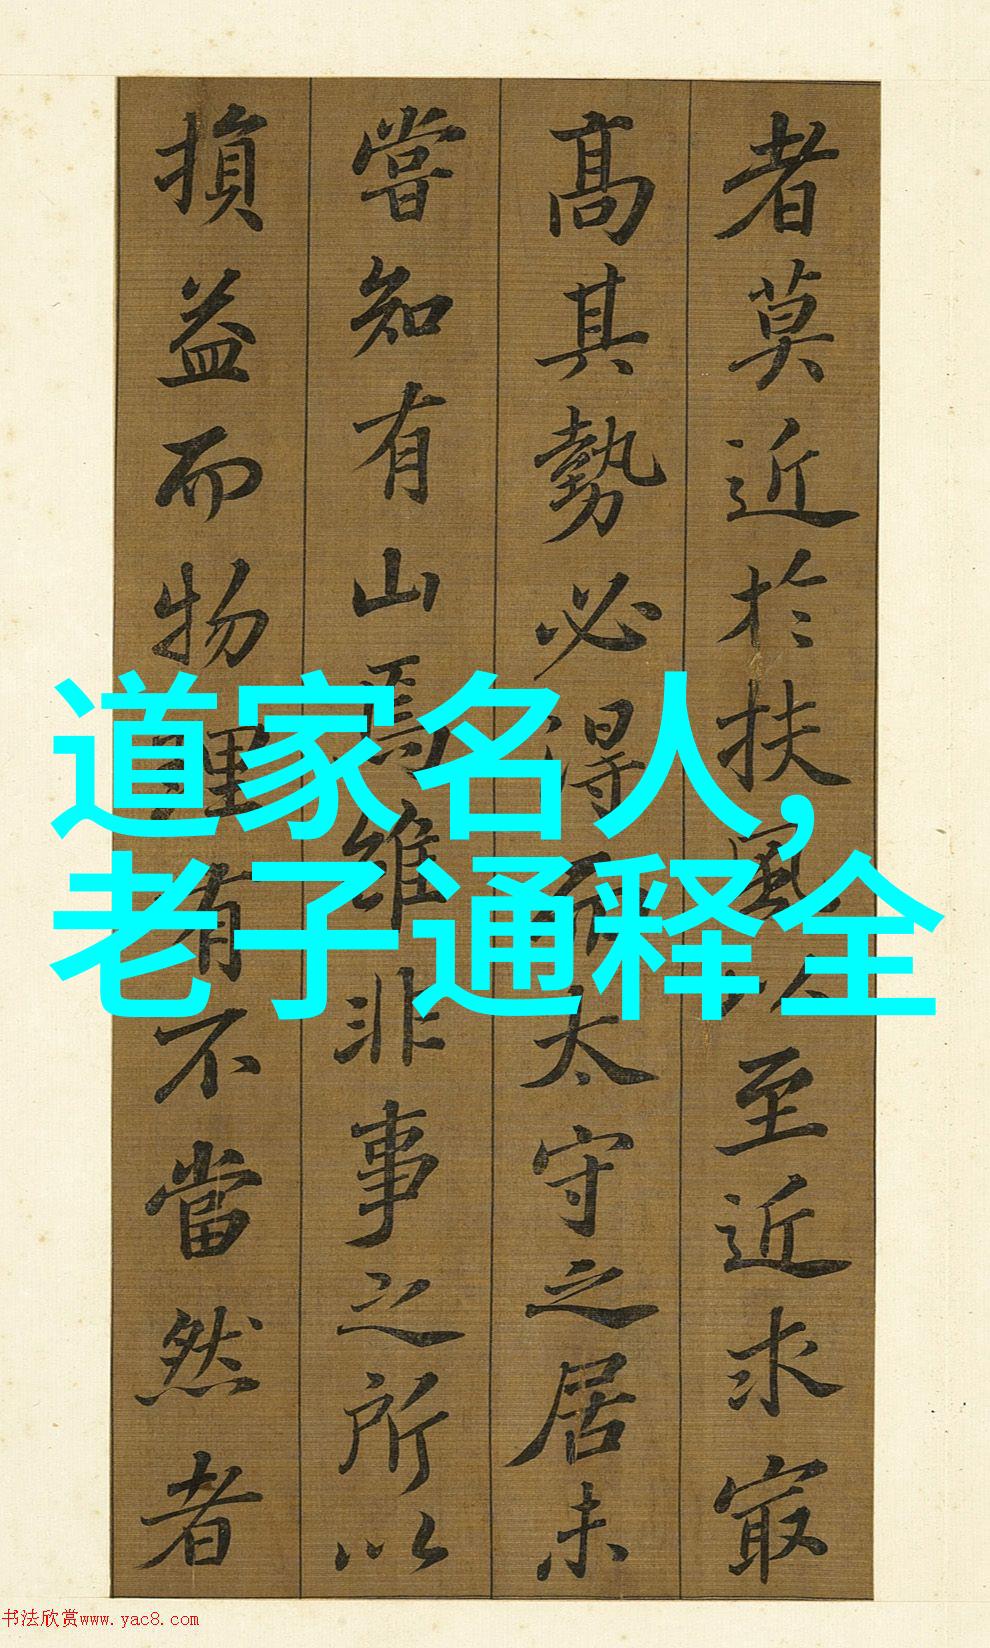 者莫近於扶風以至近求㝡
高其勢必得而太守之居未
嘗知有山焉維非事之所以
損益而物理有不當然者
道家名人，
老子通释全
书法欣赏www.yac8.com